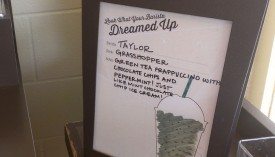 Look What Your Barista
Dreamed Up
TAYLOR
GRASSHOPPER
GREEN TEA FRAPPUCCINO WITH
CHOCOLATE CHIPS AND
PEPPERMINT! JUST
LIKE MINT CHOCOLATE
CHIP ICE CREAM!